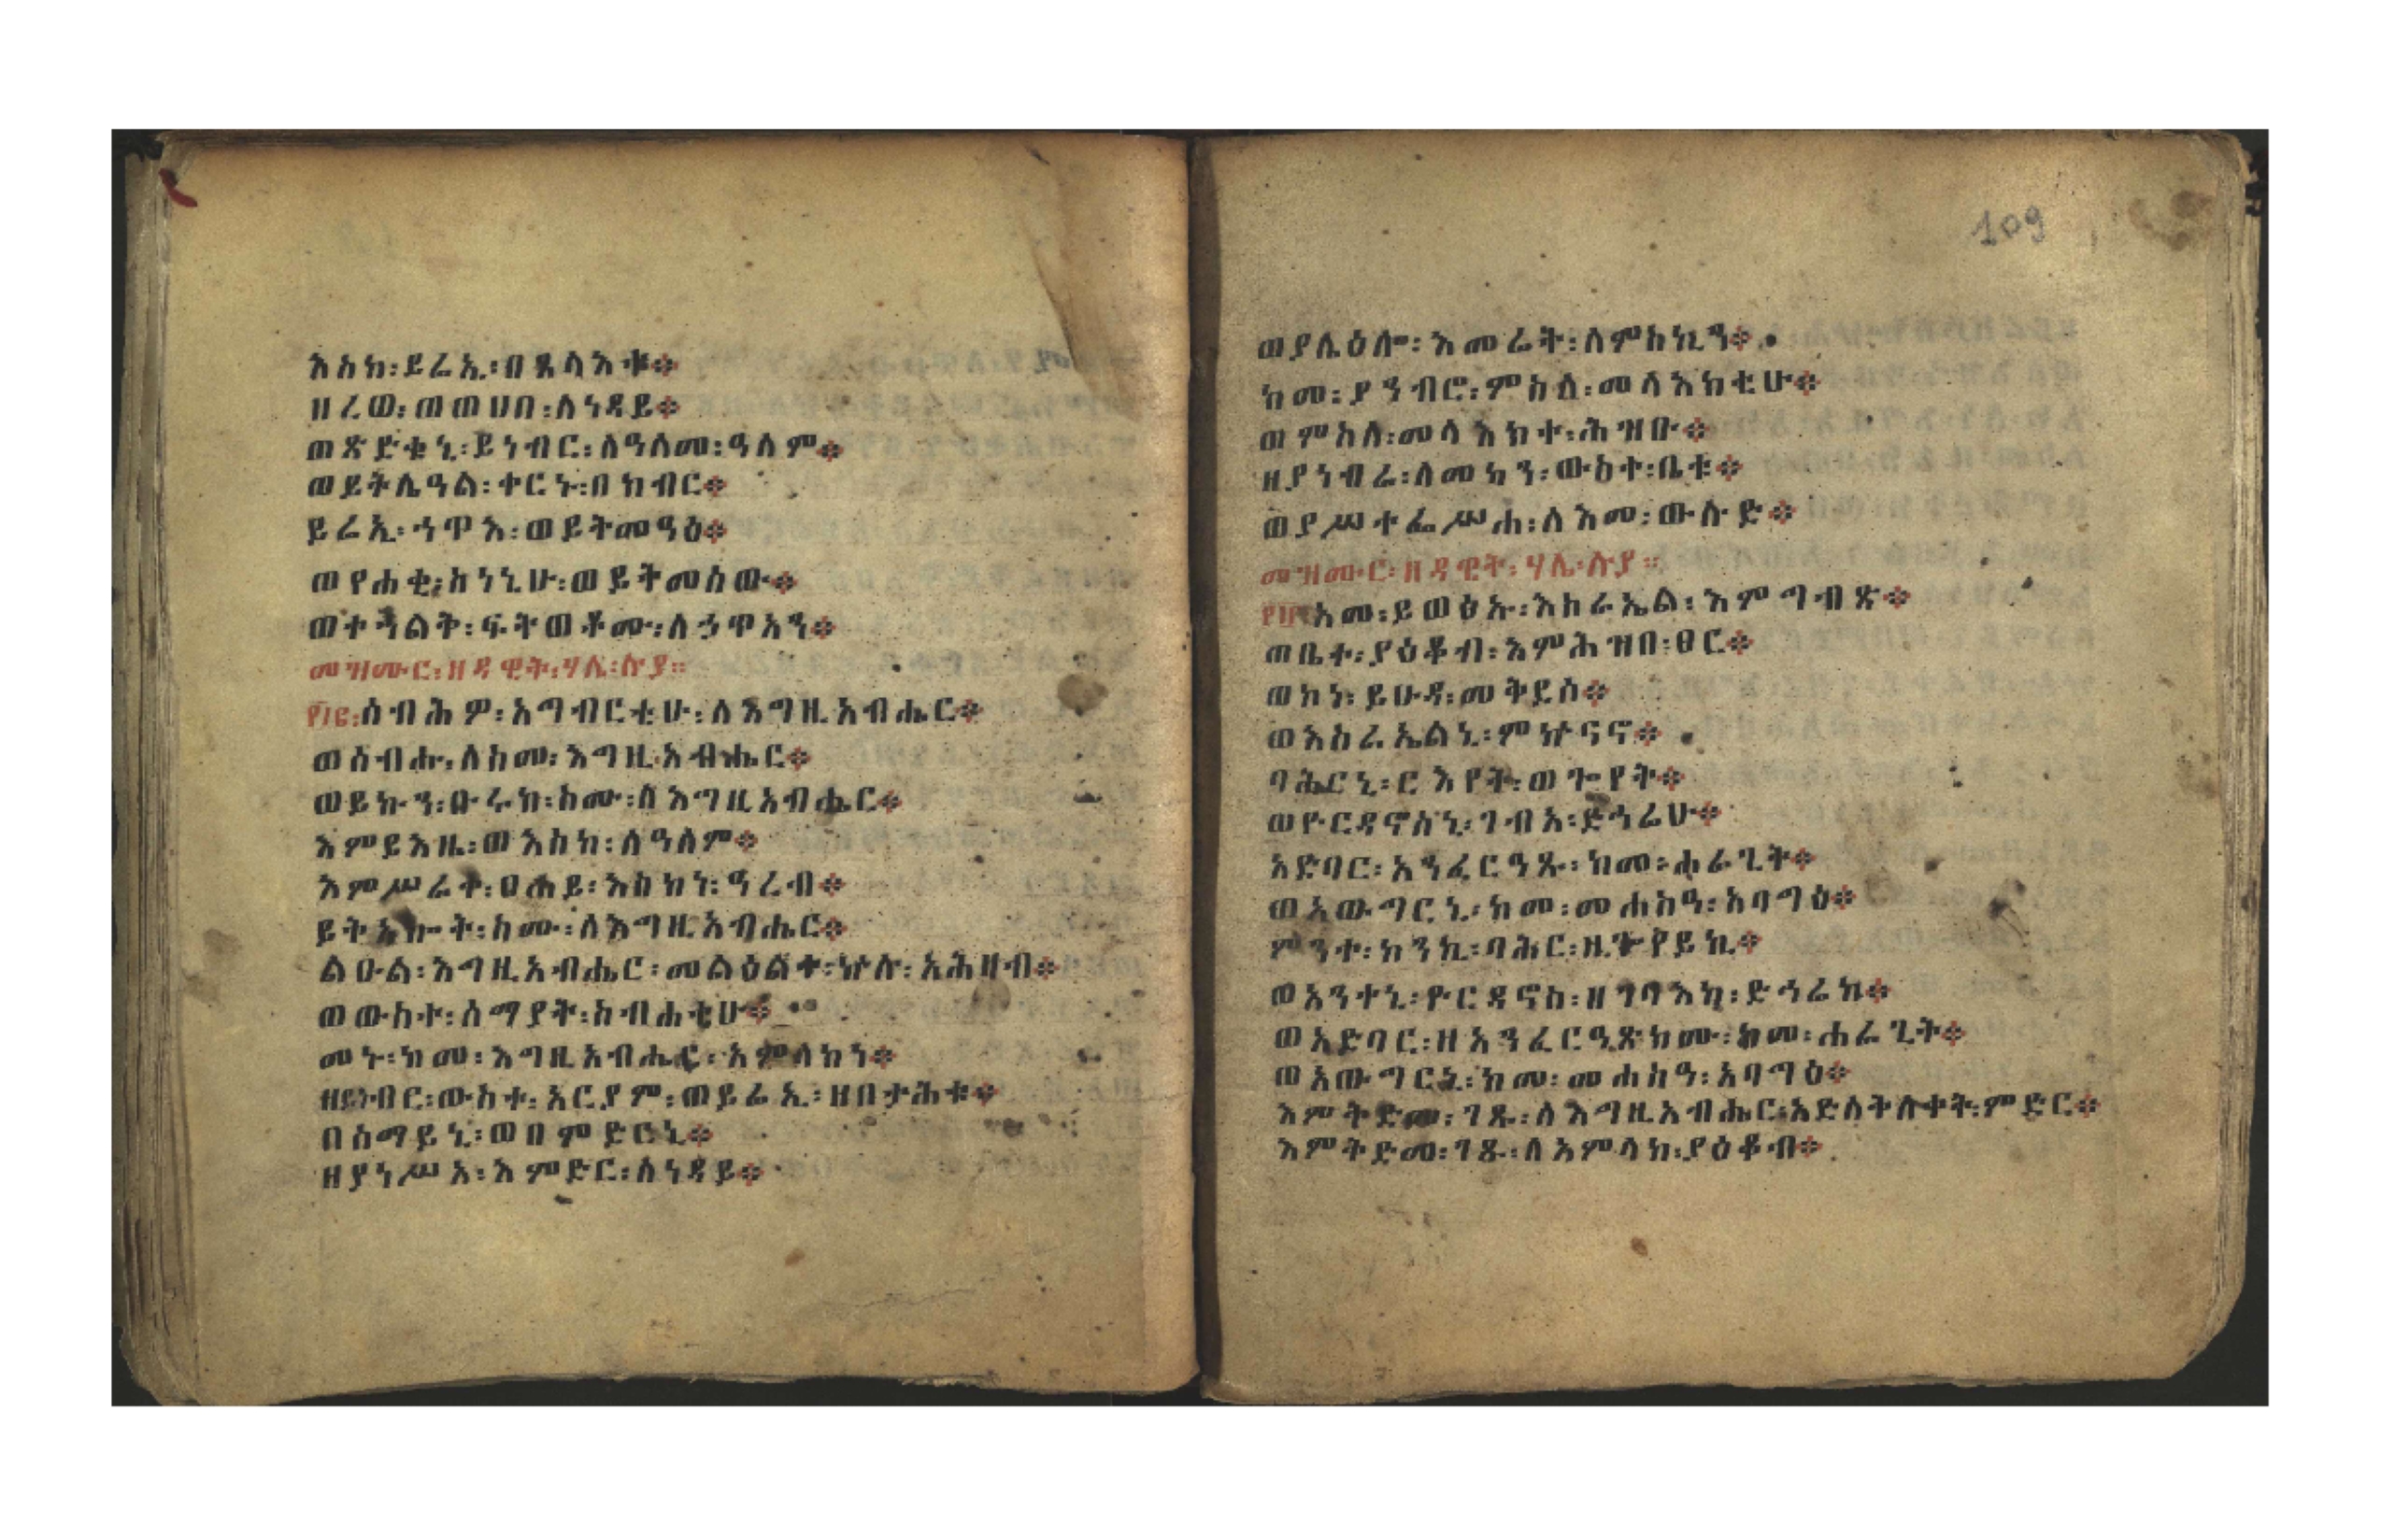 እስከ፡ይሬኢ፡በጸላእቱ።
ዘረወ፡ወወሀበ፡ለነዳይ።
ወጽድቁኒ፡ይነብር፡ለዓለመ፡ዓለም።
ወይትሌዓል፡ቀርኑ፡በክብር።
ይሬኢ፡ኃጥእ፡ወይትመዓዕ።
ወየሐቂ፡ስነኒሁ፡ወይትመሰው።
ወተኃልቅ፡ፍትወቶሙ፡ለኃጥአን።
መዝሙር፡ዘዳዊት፡ሃሌ፡ሉያ።
፻፲፪፡ሰብሕዎ፡አግብርቲሁ፡ለእግዚአብሔር።
ወሰብሑ፡ለስመ፡እግዚአብሔር።
ወይኩን፡ቡሩክ፡ስሙ፡ለእግዚአብሔር።
እምይእዜ፡ወእስከ፡ለዓለም።
እምሥሬቀ፡ፀሐይ፡እስከነ፡ዓረብ።
ይትአኰት፡ስሙ፡ለእግዚአብሔር።
ልዑል፡እግዚአብሔር፡መልዕልተ፡ኵሉ፡አሕዛብ።
ወውስተ፡ሰማያት፡ስብሐቲሁ።
መኑ፡ከመ፡እግዚአብሔር፡አምላክነ።
ዘይነብር፡ውስተ፡አርያም፡ወይሬኢ፡ዘበታሕቱ።
በሰማይኒ፡ወበምድርኒ።
ዘያነሥአ፡እምድር፡ለነዳይ።
109
ወያሌዕሎ፡እመሬት፡ለምስኪን።
ከመ፡ያንብሮ፡ምስለ፡መላእክቲሁ።
ወምስለ፡መላእክተ፡ሕዝቡ።
ዘያነብራ፡ለመካን፡ውስተ፡ቤቱ።
ወያሥተፌሥሐ፡ለእመ፡ውሉድ።
መዝሙር፡ዘዳዊት፡ሃሌ፡ሉያ።
፻፲፫አመ፡ይወፅኡ፡እስራኤል፡እምግብጽ።
ወቤተ፡ያዕቆብ፡እምሕዝበ፡ፀር።
ወኮነ፡ይሁዳ፡መቅደሶ።
ወእስራኤልኒ፡ምኵናኖ።
ባሕርኒ፡ርእየት፡ወጐየት።
ወዮርዳኖስኒ፡ገብአ፡ድኅሬሁ።
አድባር፡አንፈርዓጹ፡ከመ፡ሐራጊት።
ወአውግርኒ፡ከመ፡መሐስዓ፡አባግዕ።
ምንተ፡ኮንኪ፡ባሕር፡ዘጐየይኪ።
ወአንተኒ፡ዮርዳኖስ፡ዘገባእከ፡ድኅሬከ።
ወአድባር፡ዘአንፈርዓጽክሙ፡ከመ፡ሐራጊት።
ወአውግርኒ፡ከመ፡መሐስዓ፡አባግዕ።
እምቅድመ፡ገጹ፡ለእግዚአብሔር፡አድለቅለቀት፡ምድር።
እምቅድመ፡ገጹ፡ለአምላከ፡ያዕቆብ።